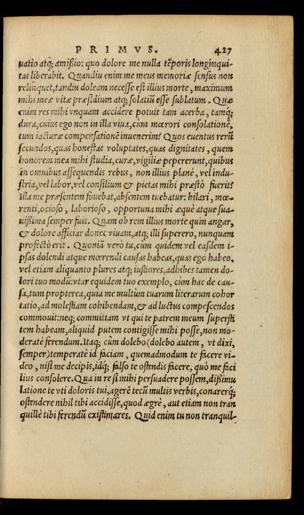 PRIMVS. 427
uatio atq; amissio: quo dolore me nulla tēporis longinqui-
tas liberabit. Quandiu enim me meus memoriæ sensus non
relinquet, tandiu doleam necesse est illius morte, maximum
mihi meæ vitæ præsidium atq; solatiū esse sublatum. Quæ
enim res mihi vnquam accidere potuit tam acerba, tamq;
dura, cuius ego non in illa viua, cùm mœrori consolationē,
tum iacturæ compensationē inuenerim? Quos euentus rerū
secundos, quas honestas voluptates, quas dignitates, quem
honorem mea mihi studia, curæ, vigiliæ pepererunt, quibus
in omnibus assequendis rebus, non illius planè, vel indu-
stria, vel labor, vel consilium & pietas mihi præstò fuerit?
illa me præsentem fouebat, absentem tuebatur: hilari, mœ-
renti, ocioso, laborioso, opportuna mihi æquè atque sua-
uissima semper fuit. Quam ob rem illius morte quin angar,
& dolore afficiar donec viuam, atq; illi superero, nunquam
profectò erit. Quoniā verò tu, cùm quidem vel easdem i-
psas dolendi atque mœrendi causas habeas, quas ego habeo,
vel etiam aliquanto plures atq; iustiores, adhibes tamen do-
lori tuo modū: vtar equidem tuo exemplo, cùm hac de cau-
sa, tum propterea, quia me multùm tuarum literarum cohor
tatio, ad molestiam cohibendam, & ad luctus compescendos
commouit: neq; committam vt qui te patrem meum supersti
tem habeam, aliquid putem contigisse mihi posse, non mo-
deratè ferendum. Itaq; cùm dolebo (dolebo autem, vt dixi,
semper) temperatè id faciam, quemadmodum te facere vi-
deo, nisi me decipis, idq; falso te ostendis facere, quò me faci
lius consolere. Qua in re si mihi persuadere possem, dissimu
latione te vti doloris tui, agere tecū multis verbis, conarerq;
ostendere nihil tibi accidisse, quod ægrè, aut etiam non tran
quillè tibi ferendū existimares. Quid enim tu non tranquil-